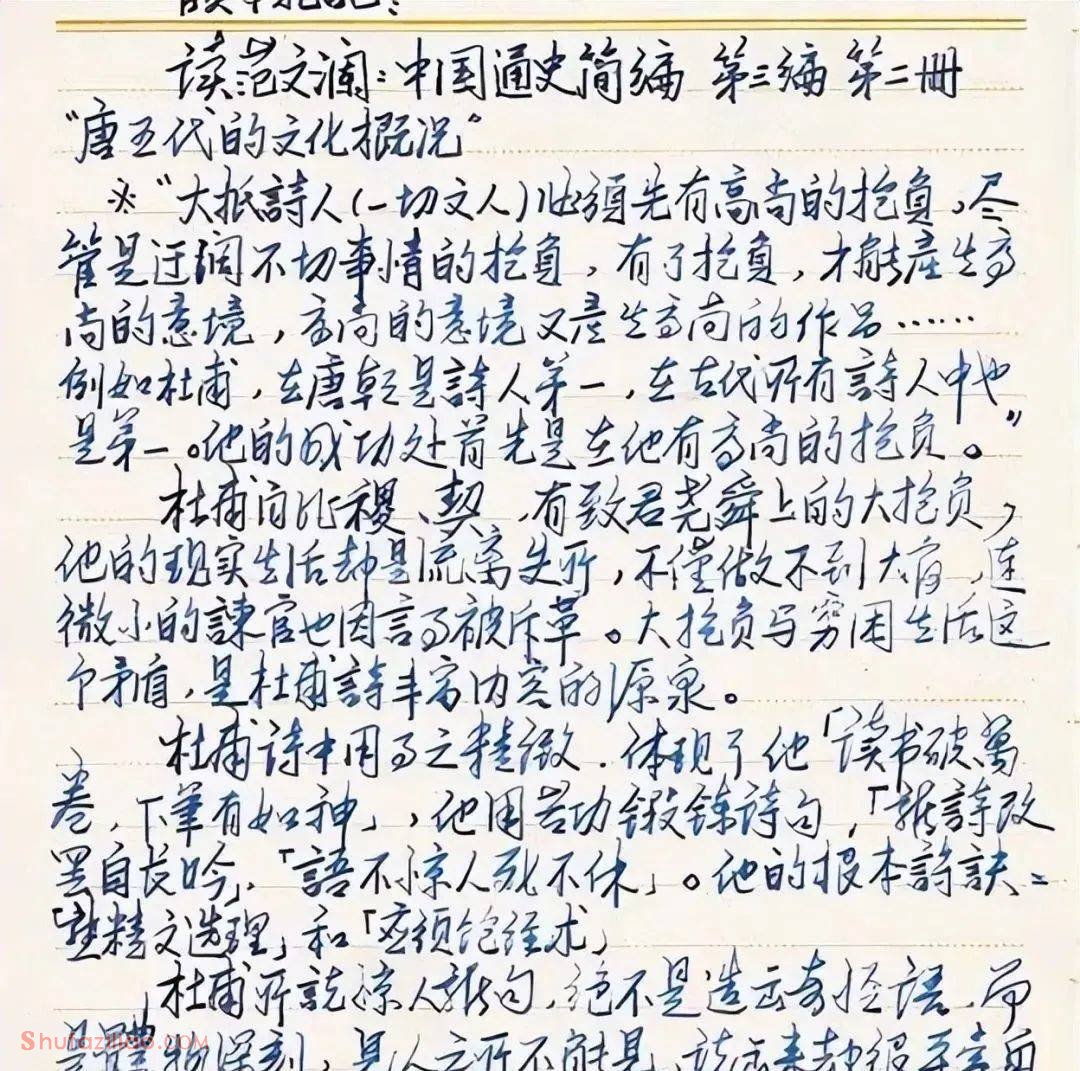 读书札记：
读范文澜：中国通史简编 第三编 第二册
“唐五代的文化概况”
※“大抵詩人(一切文人)必須先有高尚的抱負，尽
管是迂阔不切事情的抱負，有了抱負，才能產生高
尚的意境，高尚的意境又產生高尚的作品……
例如杜甫，在唐朝是詩人第一，在古代所有詩人中也
是第一。他的成功处首先是在他有高尚的抱负。”
杜甫自比稷、契，有致君尧舜上的大抱负，
他的现实生活却是流离失所，不僅做不到大官，连
微小的諫官也因言事被斥革。大抱负与穷困生活这
个矛盾，是杜甫詩丰富内容的源泉。
杜甫诗中用事之精微．体现了他「读书破萬
卷，下筆有如神」，他用苦功锻鍊诗句，「新詩改
罢自长吟」，「語不惊人死不休」。他的根本詩訣：
「熟精文选理」和「应须饱经术」
杜甫所說惊人新句，绝不是造出奇怪語，而
是體物深刻，見人之所不能見，
Shufaziliao.COM